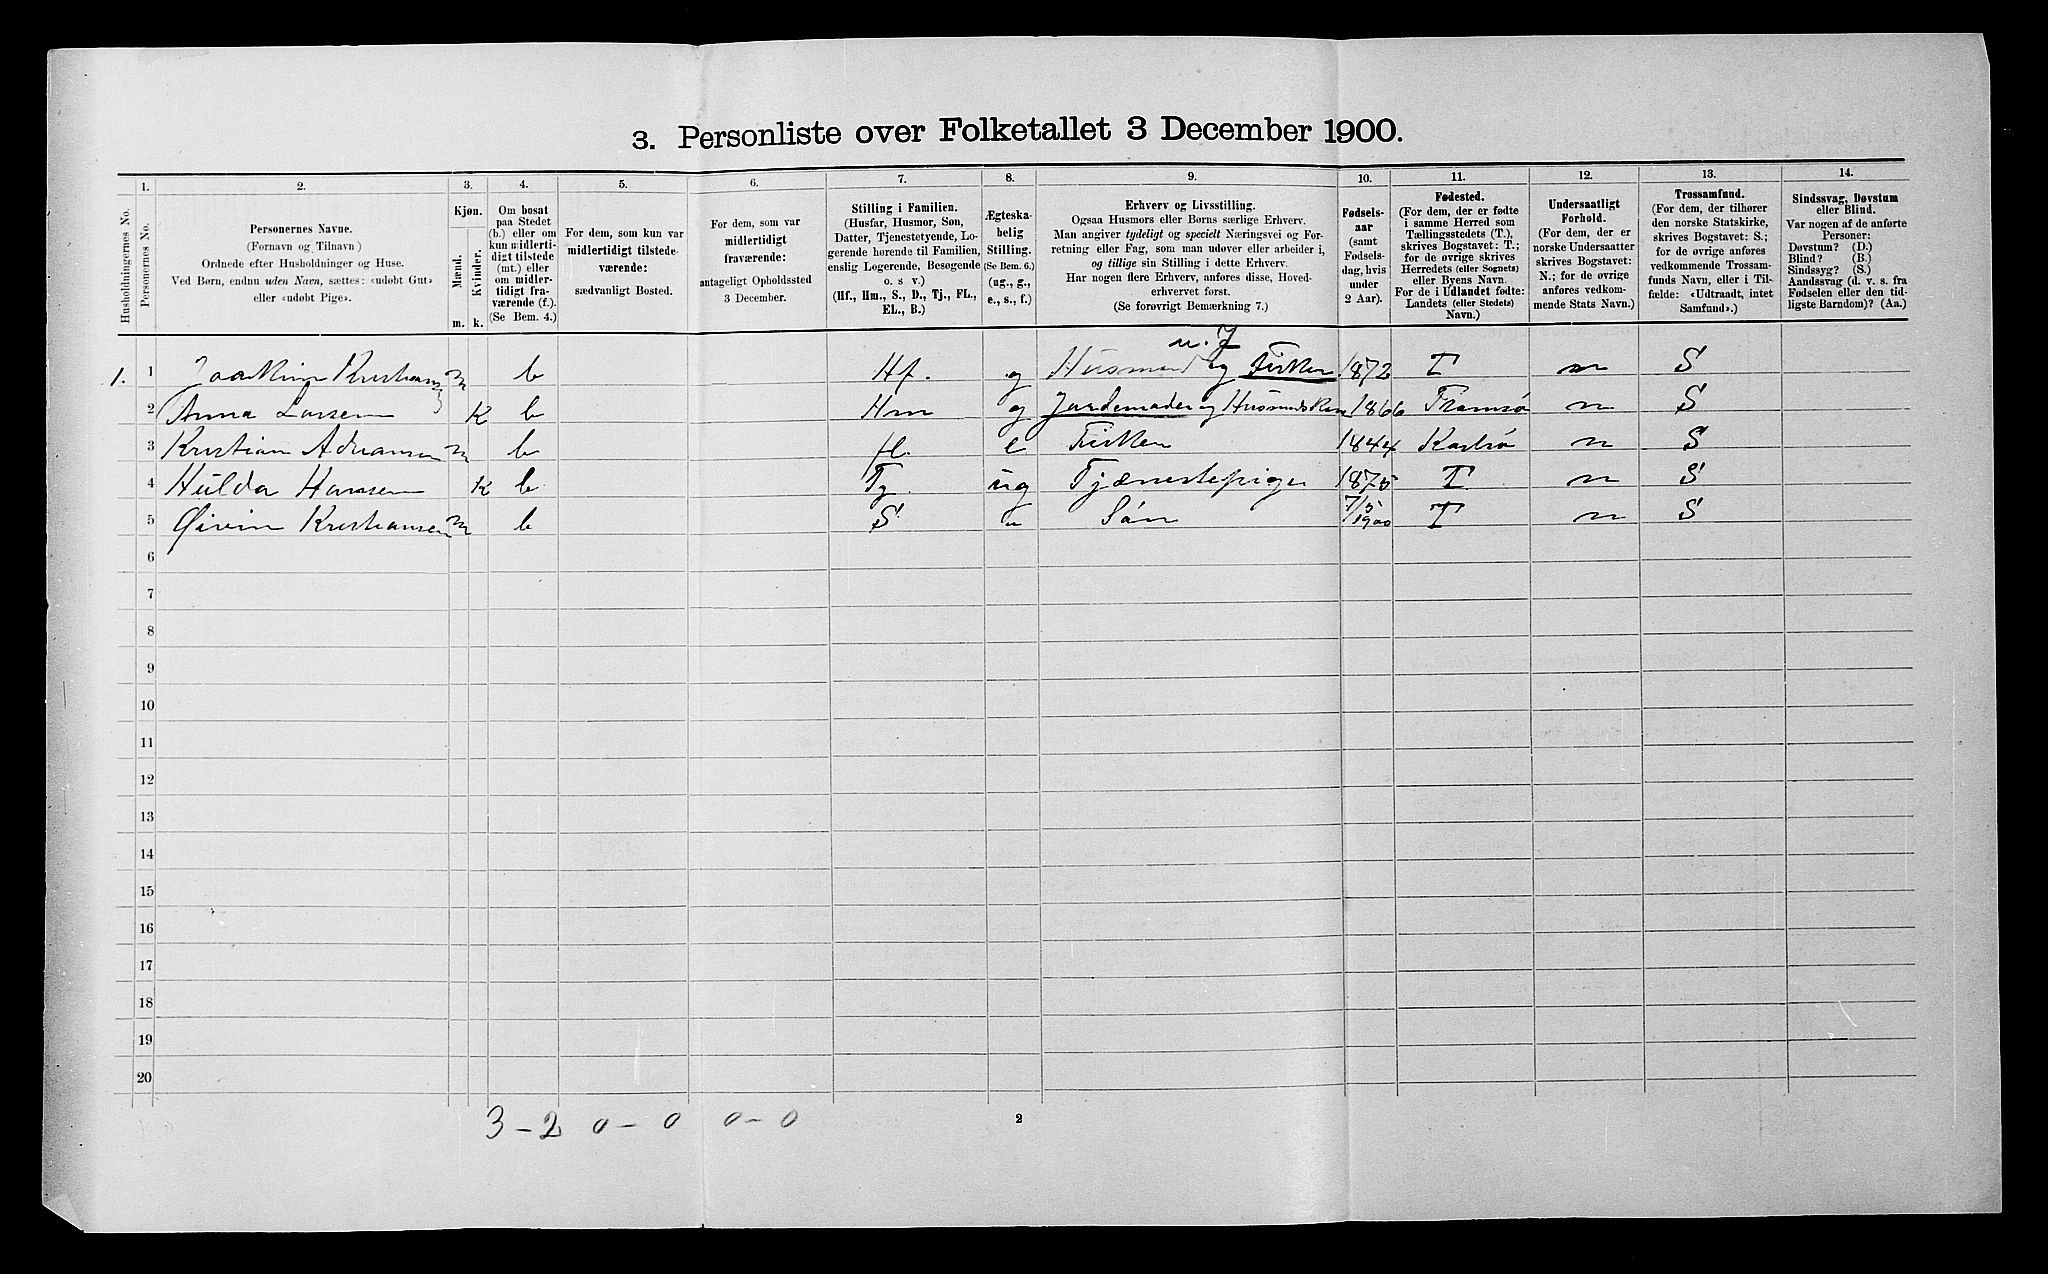 3. Personliste over Folketallet 3 December 1900.
1. 2. 3. 4. 5. 6. 7. 8. 9. 10. 11. 12. 13. 14.
Husholdningernes No.
Personernes No.
Personernes Navne.
(Fornavn og Tilnavn)
Ordnede efter Husholdninger og Huse.
Ved Børn, endnu uden Navn, sættes: «udøbt Gut»
eller «udøbt Pige».
Kjøn.
Mænd.
Kvinder.
m. k.
Om bosat
paa Stedet
(b.) eller om
kun midlerti-
digt tilstede
(mt.) eller
om midler-
tidigt fra-
værende (f.).
(Se Bem. 4.)
For dem, som kun var
midlertidigt tilstede-
værende:
sædvanligt Bosted.
For dem, som var
midlertidigt
fraværende:
antageligt Opholdssted
3 December.
Stilling i Familien.
(Husfar, Husmor, Søn,
Datter, Tjenestetyende, Lo-
gerende hørende til Familien,
enslig Logerende, Besøgende
o. s. v.)
(Hf., Hm., S., D., Tj., FL.,
EL., B.)
Ægteska-
belig
Stilling.
(Se Bem. 6.)
(ug., g.,
e., s., f.)
Erhverv og Livsstilling.
Ogsaa Husmors eller Børns særlige Erhverv.
Man angiver tydeligt og specielt Næringsvei og For-
retning eller Fag, som man udøver eller arbeider i,
og tillige sin Stilling i dette Erhverv.
Har nogen flere Erhverv, anføres disse, Hoved-
erhvervet først.
(Se forøvrigt Bemærkning 7.)
Fødsels-
aar
(samt
Fødsels-
dag, hvis
under
2 Aar).
Fødested.
(For dem, der er fødte
i samme Herred som
Tællingsstedets (T.),
skrives Bogstavet: T.;
for de øvrige skrives
Herredets (eller Sognets)
eller Byens Navn.
For de i Udlandet fødte:
Landets (eller Stedets)
Navn.)
Undersaatligt
Forhold.
(For dem, der er
norske Undersaatter
skrives Bogstavet:
N.; for de øvrige
anføres vedkom-
mende Stats Navn.)
Trossamfund.
(For dem, der tilhører
den norske Statskirke,
skrives Bogstavet: S.;
for de øvrige anføres
vedkommende Trossam-
funds Navn, eller i Til-
fælde: «Udtraadt, intet
Samfund».)
Sindssvag, Døvstum
eller Blind.
Var nogen af de anførte
Personer:
Døvstum? (D.)
Blind? (B.)
Sindssyg? (S.)
Aandssvag (d. v. s. fra
Fødselen eller den tid-
ligste Barndom)? (Aa.)
1. 1 Kristiansen m b Hf. g Husmand og Fisker 1872 T n S
2 Anna Larsen K b Hm g og 1866 Tromsø n S
3 Kristian Adriansen m b e Fisker 1844 Karlsø n S
4 Hulda Hansen K b Tj ug Tjænestepige 1875 T n S
5 Øivin Kristiansen m b S u Sön 7/5 1900 T n S
6
7
8
9
10
11
12
13
14
15
16
17
18
19
20
3 - 2 0 - 0 0 - 0 2